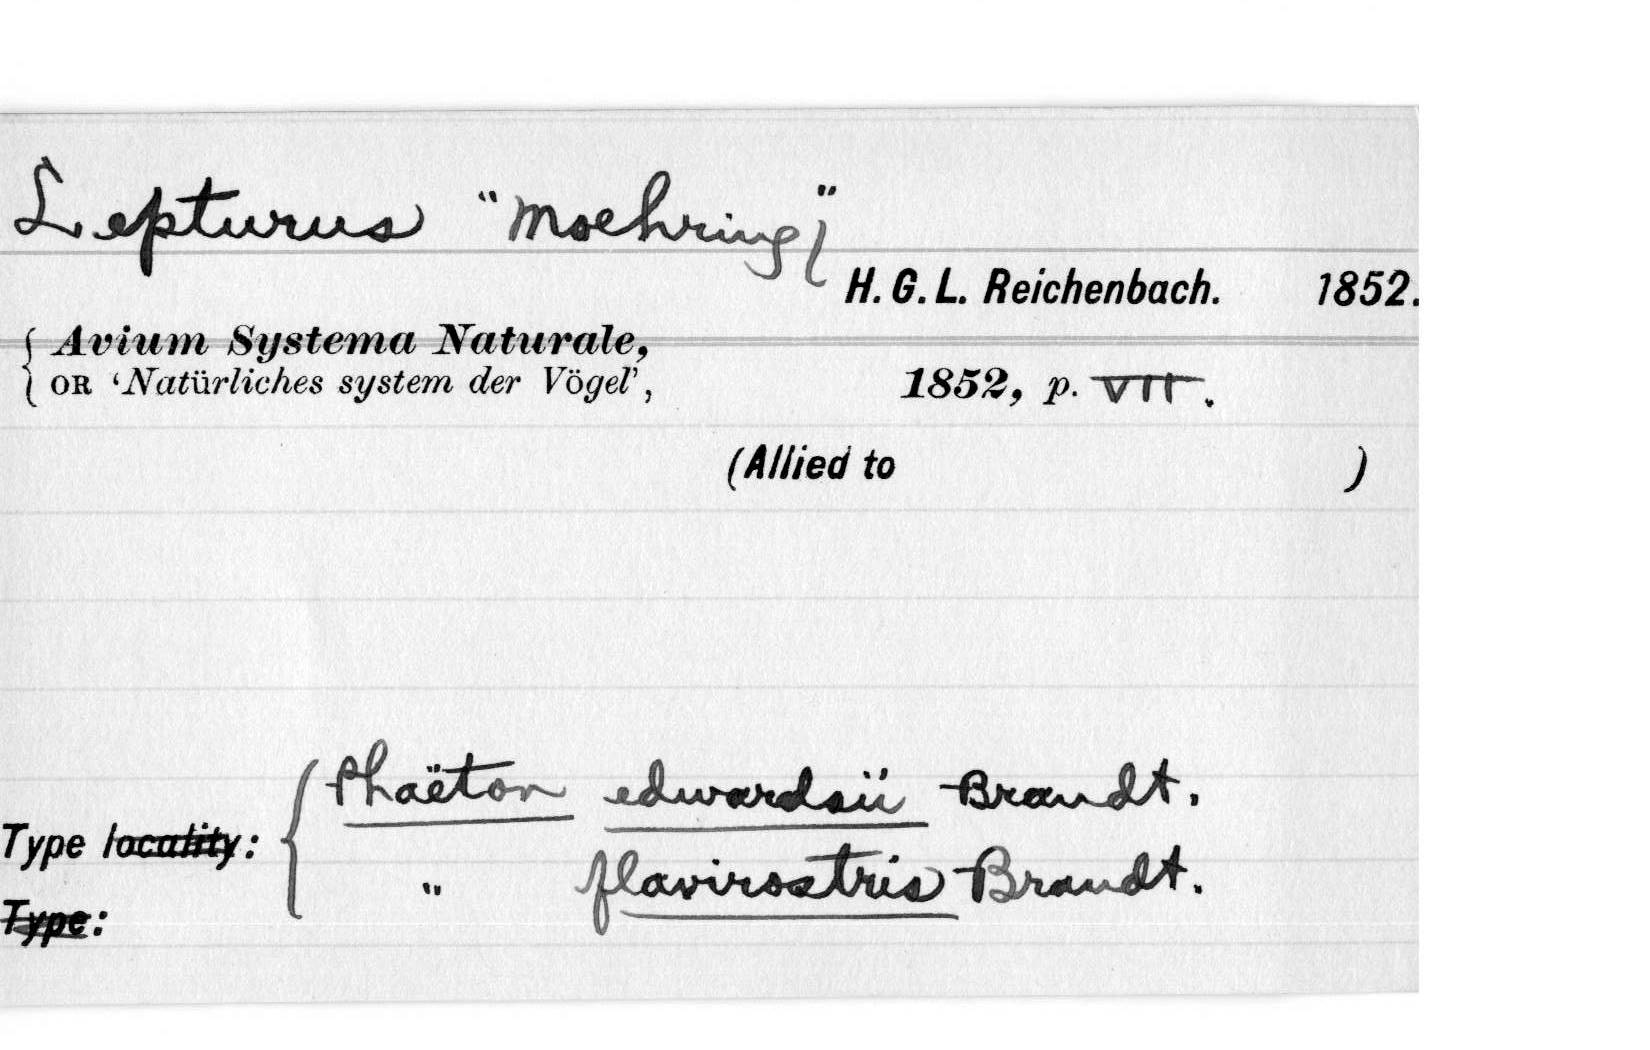 Lepturus "Moehring"
H. G. L. Reichenbach. 1852.
{ Avium Systema Naturale,
OR ‘Natürliches system der Vögel’, 1852, p. VII.
(Allied to )
Phaëton edwardsii Brandt.
Type locality:
" flavirostris Brandt.
Type: